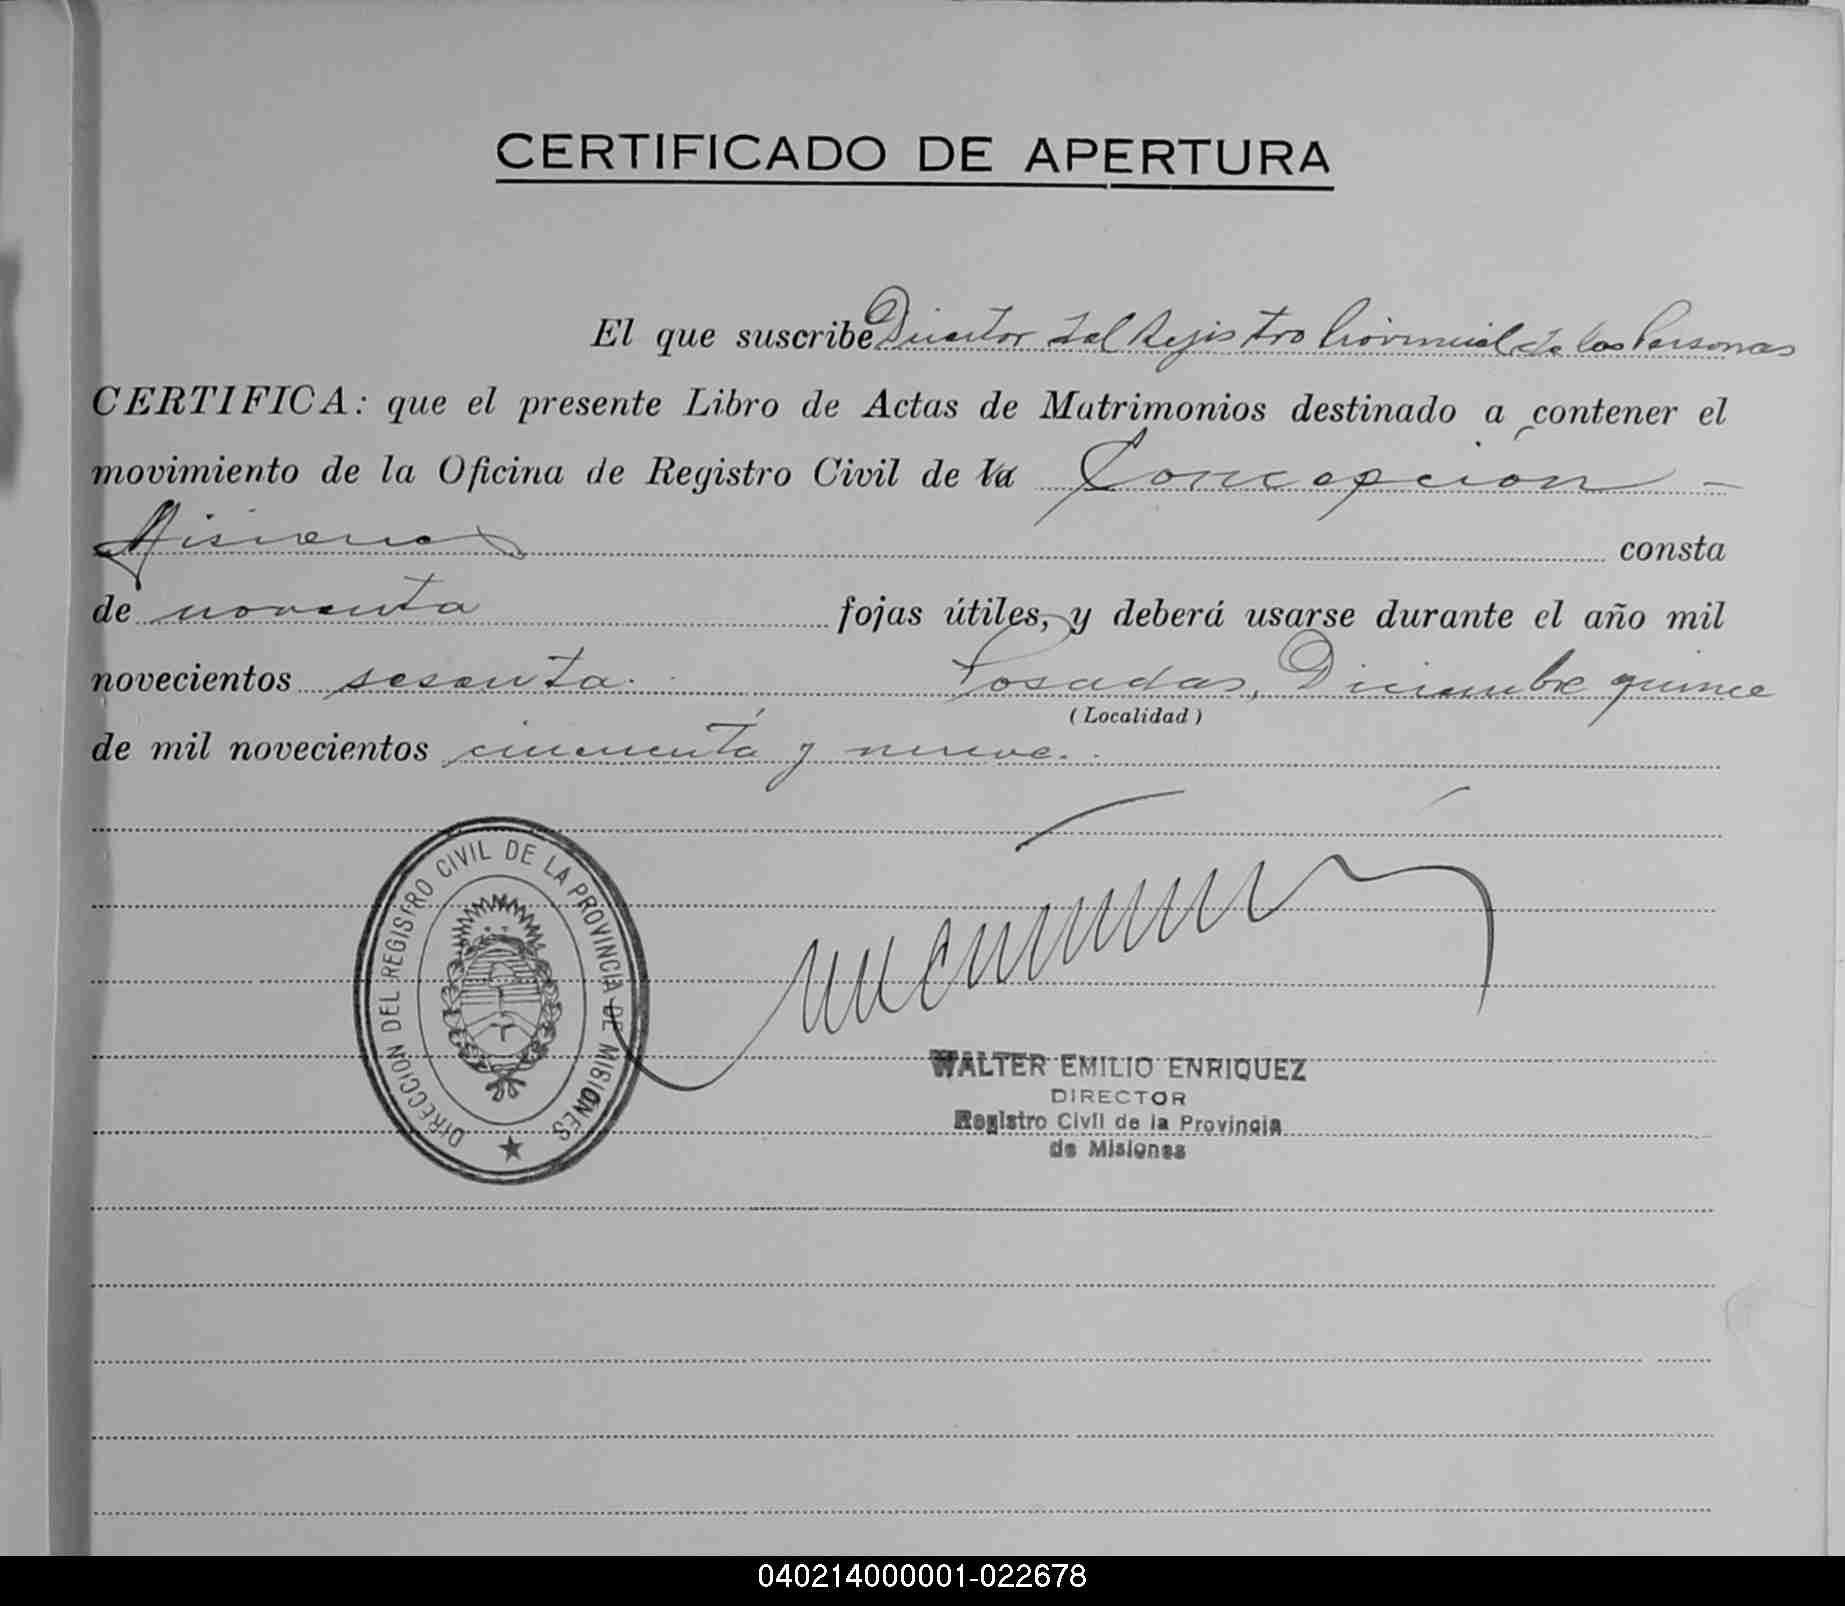 CERTIFICADO DE APERTURA
El que suscribe Director del Registro Provincial de las Personas
CERTIFICA: que el presente Libro de Actas de Matrimonios destinado a contener el
movimiento de la Oficina de Registro Civil de la Concepción -
Misiones consta
de noventa fojas útiles, y deberá usarse durante el año mil
novecientos sesenta. Posadas, Diciembre quince
(Localidad)
de mil novecientos cincuenta y nueve.
DIRECCION DEL REGISTRO CIVIL DE LA PROVINCIA DE MISIONES
WALTER EMILIO ENRIQUEZ
DIRECTOR
Registro Civil de la Provincia
de Misiones
040214000001-022678